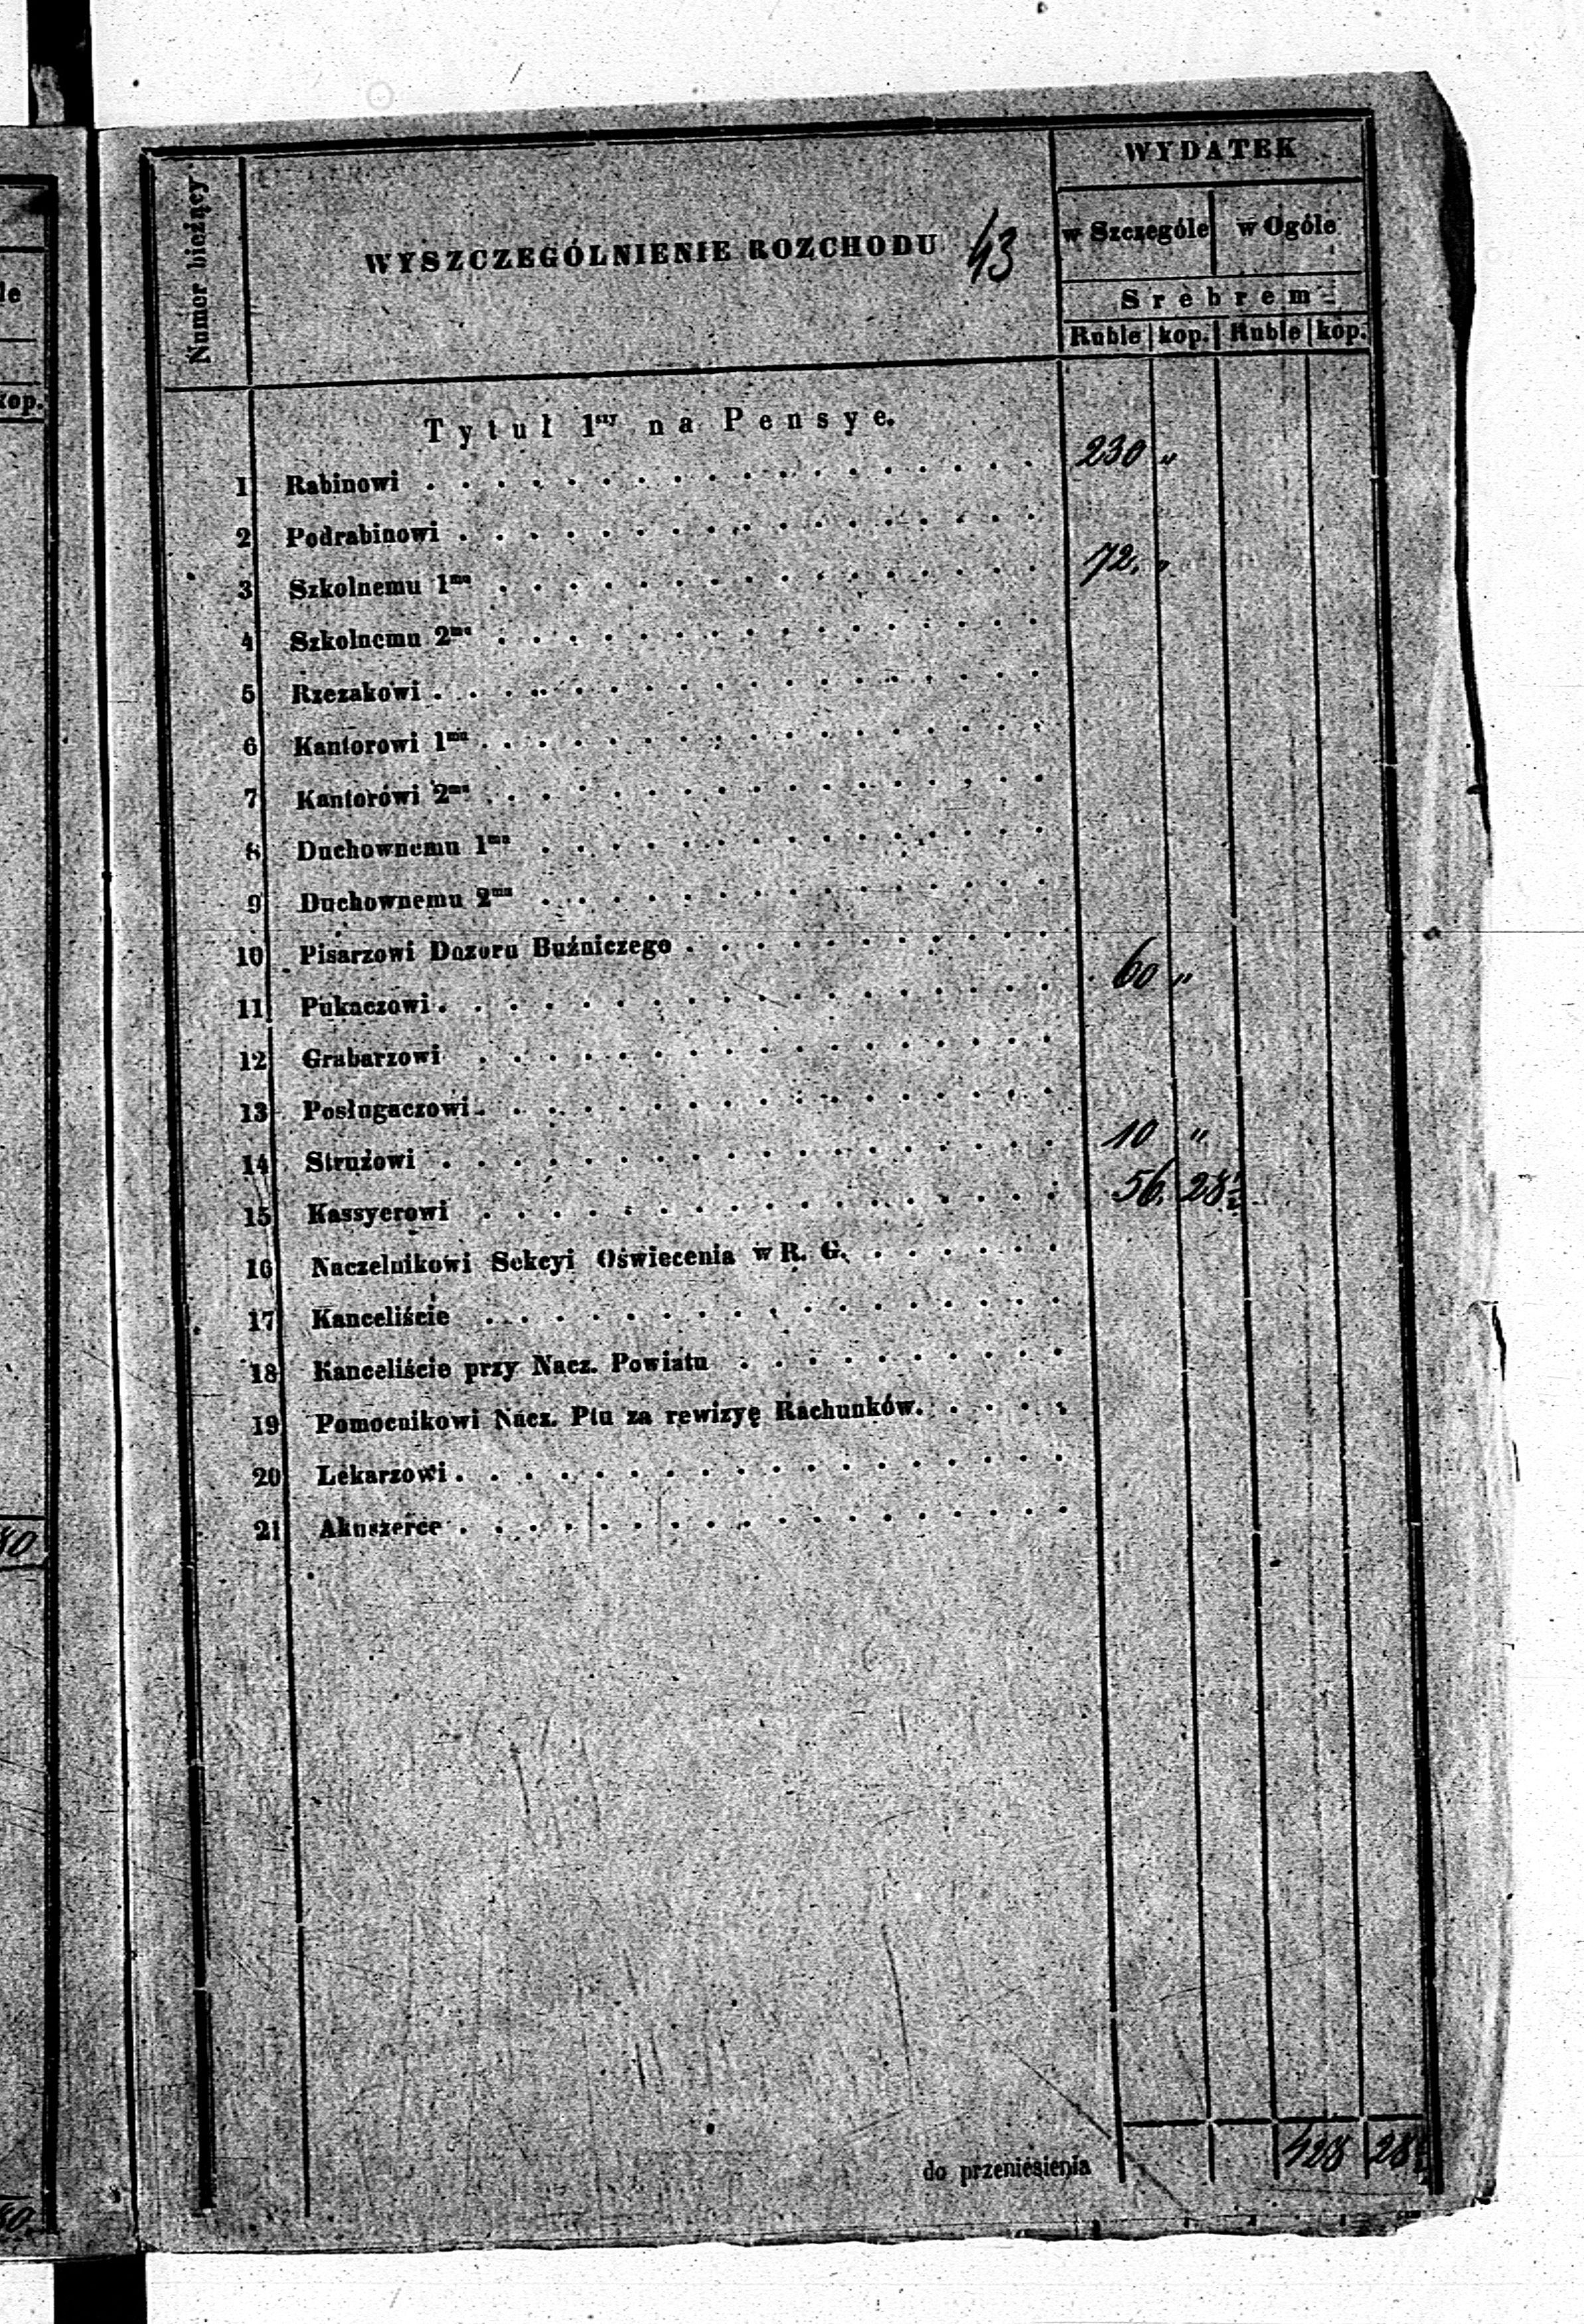 le
kop.
80
80
Numer bieżący
WYSZCZEGÓLNIENIE ROZCHODU 43
WYDATEK
w Szczególe w Ogóle
Srebrem
Ruble kop. Ruble kop.
Tytuł 1szy na Pensye.
1 Rabinowi . . . . . . . . . . . . . . . . . . 230 "
2 Podrabinowi . . . . . . . . . . . . . . . . .
3 Szkolnemu 1mu . . . . . . . . . . . . . . . . 72. "
4 Szkolnemu 2mu . . . . . . . . . . . . . . . .
5 Rzezakowi . . . . . . . . . . . . . . . . . .
6 Kantorowi 1mu . . . . . . . . . . . . . . . . .
7 Kantorowi 2mu . . . . . . . . . . . . . . . .
8 Duchownemu 1mu . . . . . . . . . . . . . . .
9 Duchownemu 2mu . . . . . . . . . . . . . . .
10 Pisarzowi Dozoru Buźniczego . . . . . . . . . . .
11 Pukaczowi . . . . . . . . . . . . . . . . . . 60 "
12 Grabarzowi . . . . . . . . . . . . . . . . .
13 Posługaczowi . . . . . . . . . . . . . . . . .
14 Stružowi . . . . . . . . . . . . . . . . . . 10 "
15 Kassyerowi . . . . . . . . . . . . . . . . . 56. 28½
16 Naczelnikowi Sekcyi Oświecenia w R. G. . . . . . .
17 Kanceliście . . . . . . . . . . . . . . . . .
18 Kanceliście przy Nacz. Powiatu . . . . . . . . . .
19 Pomocnikowi Nacz. Ptu za rewizyę Rachunków. . . . . .
20 Lekarzowi . . . . . . . . . . . . . . . . . .
21 Akuszerce . . . . . . . . . . . . . . . . . .
do przeniesienia 428 28½